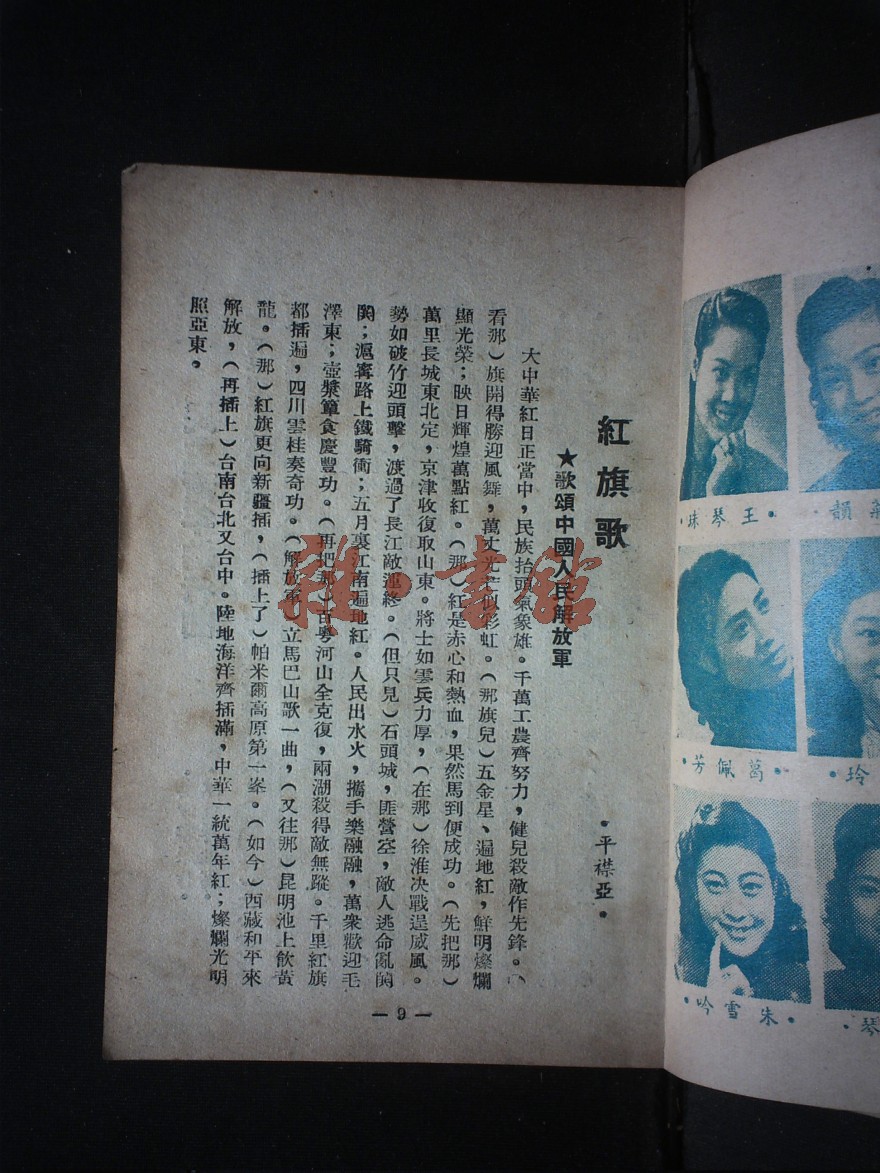 紅旗歌
★歌頌中國人民解放軍
•平襟亞•
大中華紅日正當中，民族抬頭氣象雄。千萬工農齊努力，健兒殺敵作先鋒。（
看那）旗開得勝迎風舞，萬丈光芒似彩虹。（那旗兒）五金星、遍地紅，鮮明燦爛
顯光榮；映日輝煌萬點紅。（那）紅是赤心和熱血，果然馬到便成功。（先把那）
萬里長城東北定，京津收復取山東。將士如雲兵力厚，（在那）徐淮决戰逞威風。
勢如破竹迎頭擊，渡過了長江敵運終。（但只見）石頭城，匪營空，敵人逃命亂鬨
鬨；滬寗路上鐵騎衝；五月裏江南遍地紅。人民出水火，攜手樂融融，萬衆歡迎毛
澤東；壺漿簞食慶豐功。（再把那）百粵河山全克復，兩湖殺得敵無蹤。千里紅旗
都插遍，四川雲桂奏奇功。（解放軍）立馬巴山歌一曲，（又往那）昆明池上飲黃
龍。（那）紅旗更向新疆插，（插上了）帕米爾高原第一峯。（如今）西藏和平來
解放，（再插上）台南台北又台中。陸地海洋齊插滿，中華一統萬年紅；燦爛光明
照亞東。
— 9 —
•王琴珠•
韻
•葛佩芳•
玲
•朱雪吟•
琴•
雅•書館